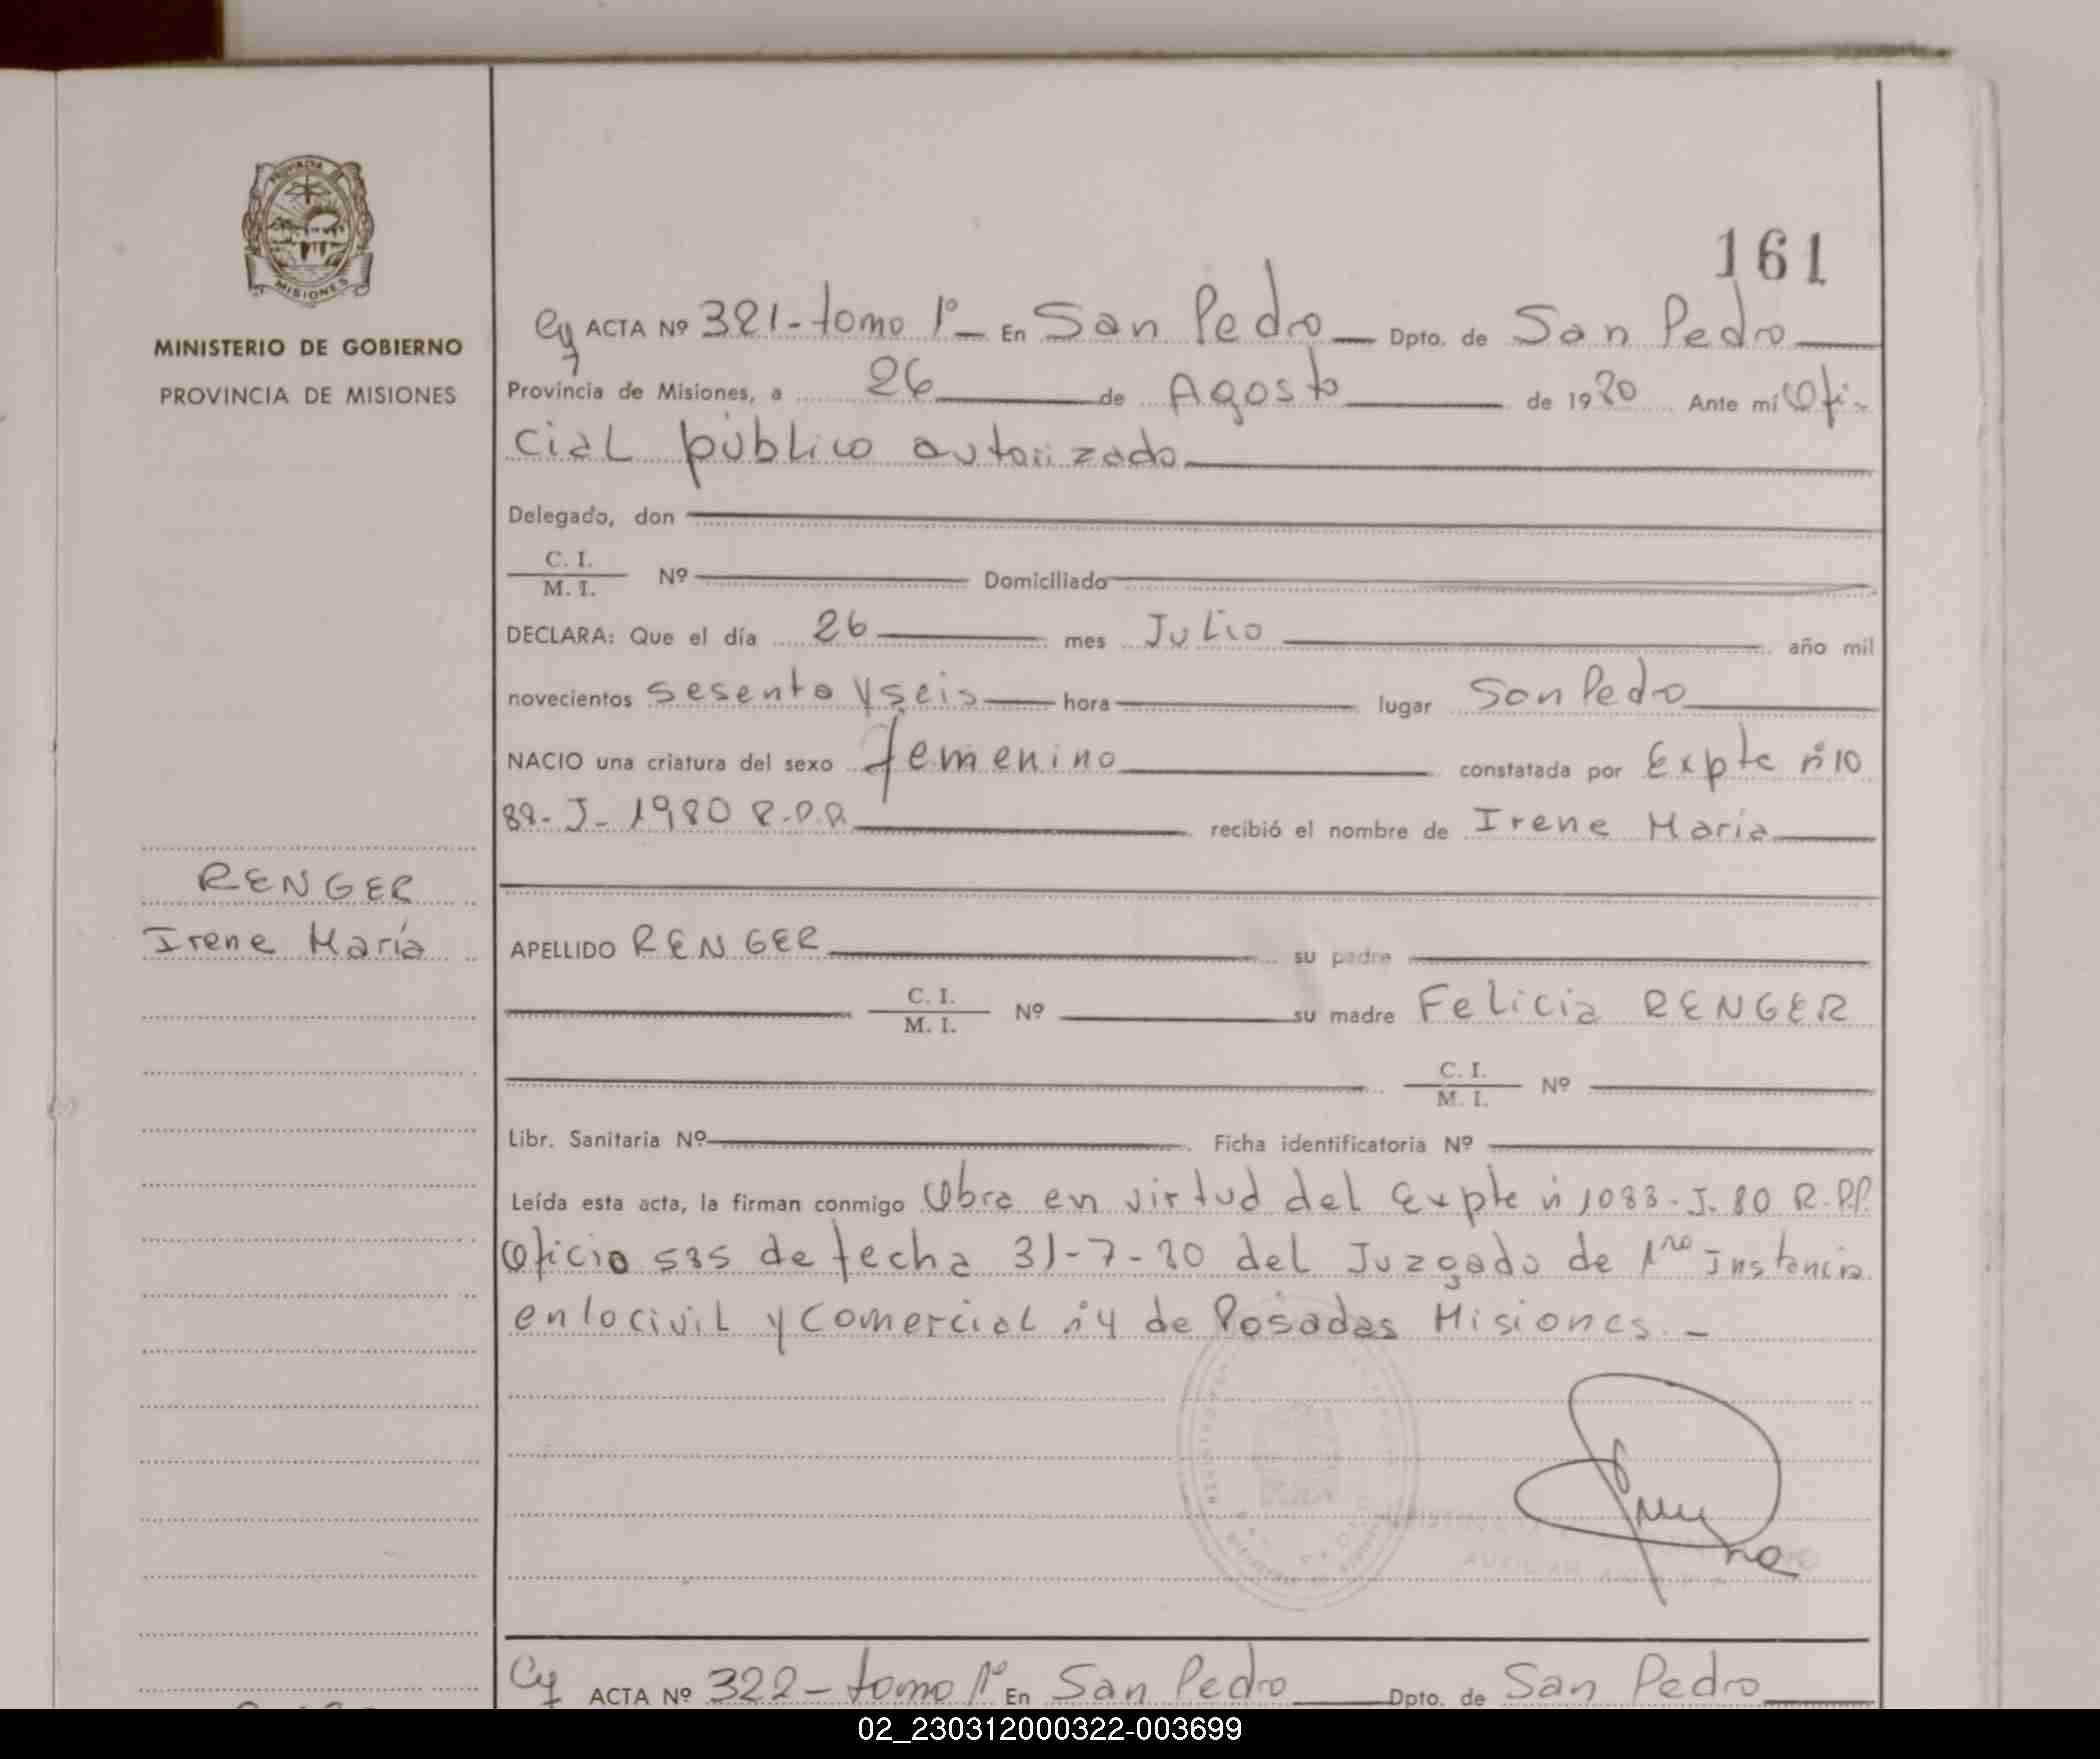 PROVINCIA
MISIONES
MINISTERIO DE GOBIERNO
PROVINCIA DE MISIONES
RENGER
Irene María
161
ACTA Nº 321 - tomo 1º - En San Pedro Dpto. de San Pedro
Provincia de Misiones, a 26 de Agosto de 1980 Ante mi Ofi-
cial público autorizado
Delegado, don
C. I.
M. I. Nº Domiciliado
DECLARA: Que el día 26 mes Julio año mil
novecientos sesenta y seis hora lugar San Pedro
NACIO una criatura del sexo femenino constatada por Expte nº 10
88- J- 1980 R.P.P. recibió el nombre de Irene María
APELLIDO RENGER su padre
C. I.
M. I. Nº su madre Felicia RENGER
C. I.
M. I. Nº
Libr. Sanitaria Nº Ficha identificatoria Nº
Leída esta acta, la firman conmigo Obra en virtud del Expte nº 1088-J-80 R.P.P.
Oficio 585 de fecha 31-7-80 del Juzgado de 1ra Instancia
en lo civil y Comercial nº 4 de Posadas Misiones. -
ACTA Nº 322 - tomo 1º En San Pedro Dpto. de San Pedro
02_230312000322-003699